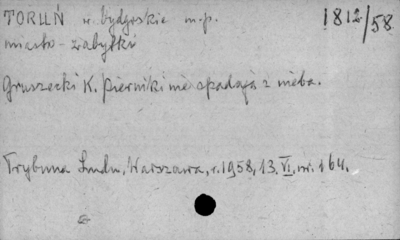 TORUŃ w. bydgoskie m.p. 1812/58
miasto - zabytki
Gruszecki K. Pierniki nie spadają z nieba.
Trybuna Ludu, Warszawa, r. 1958, 13.VI, nr. 164.